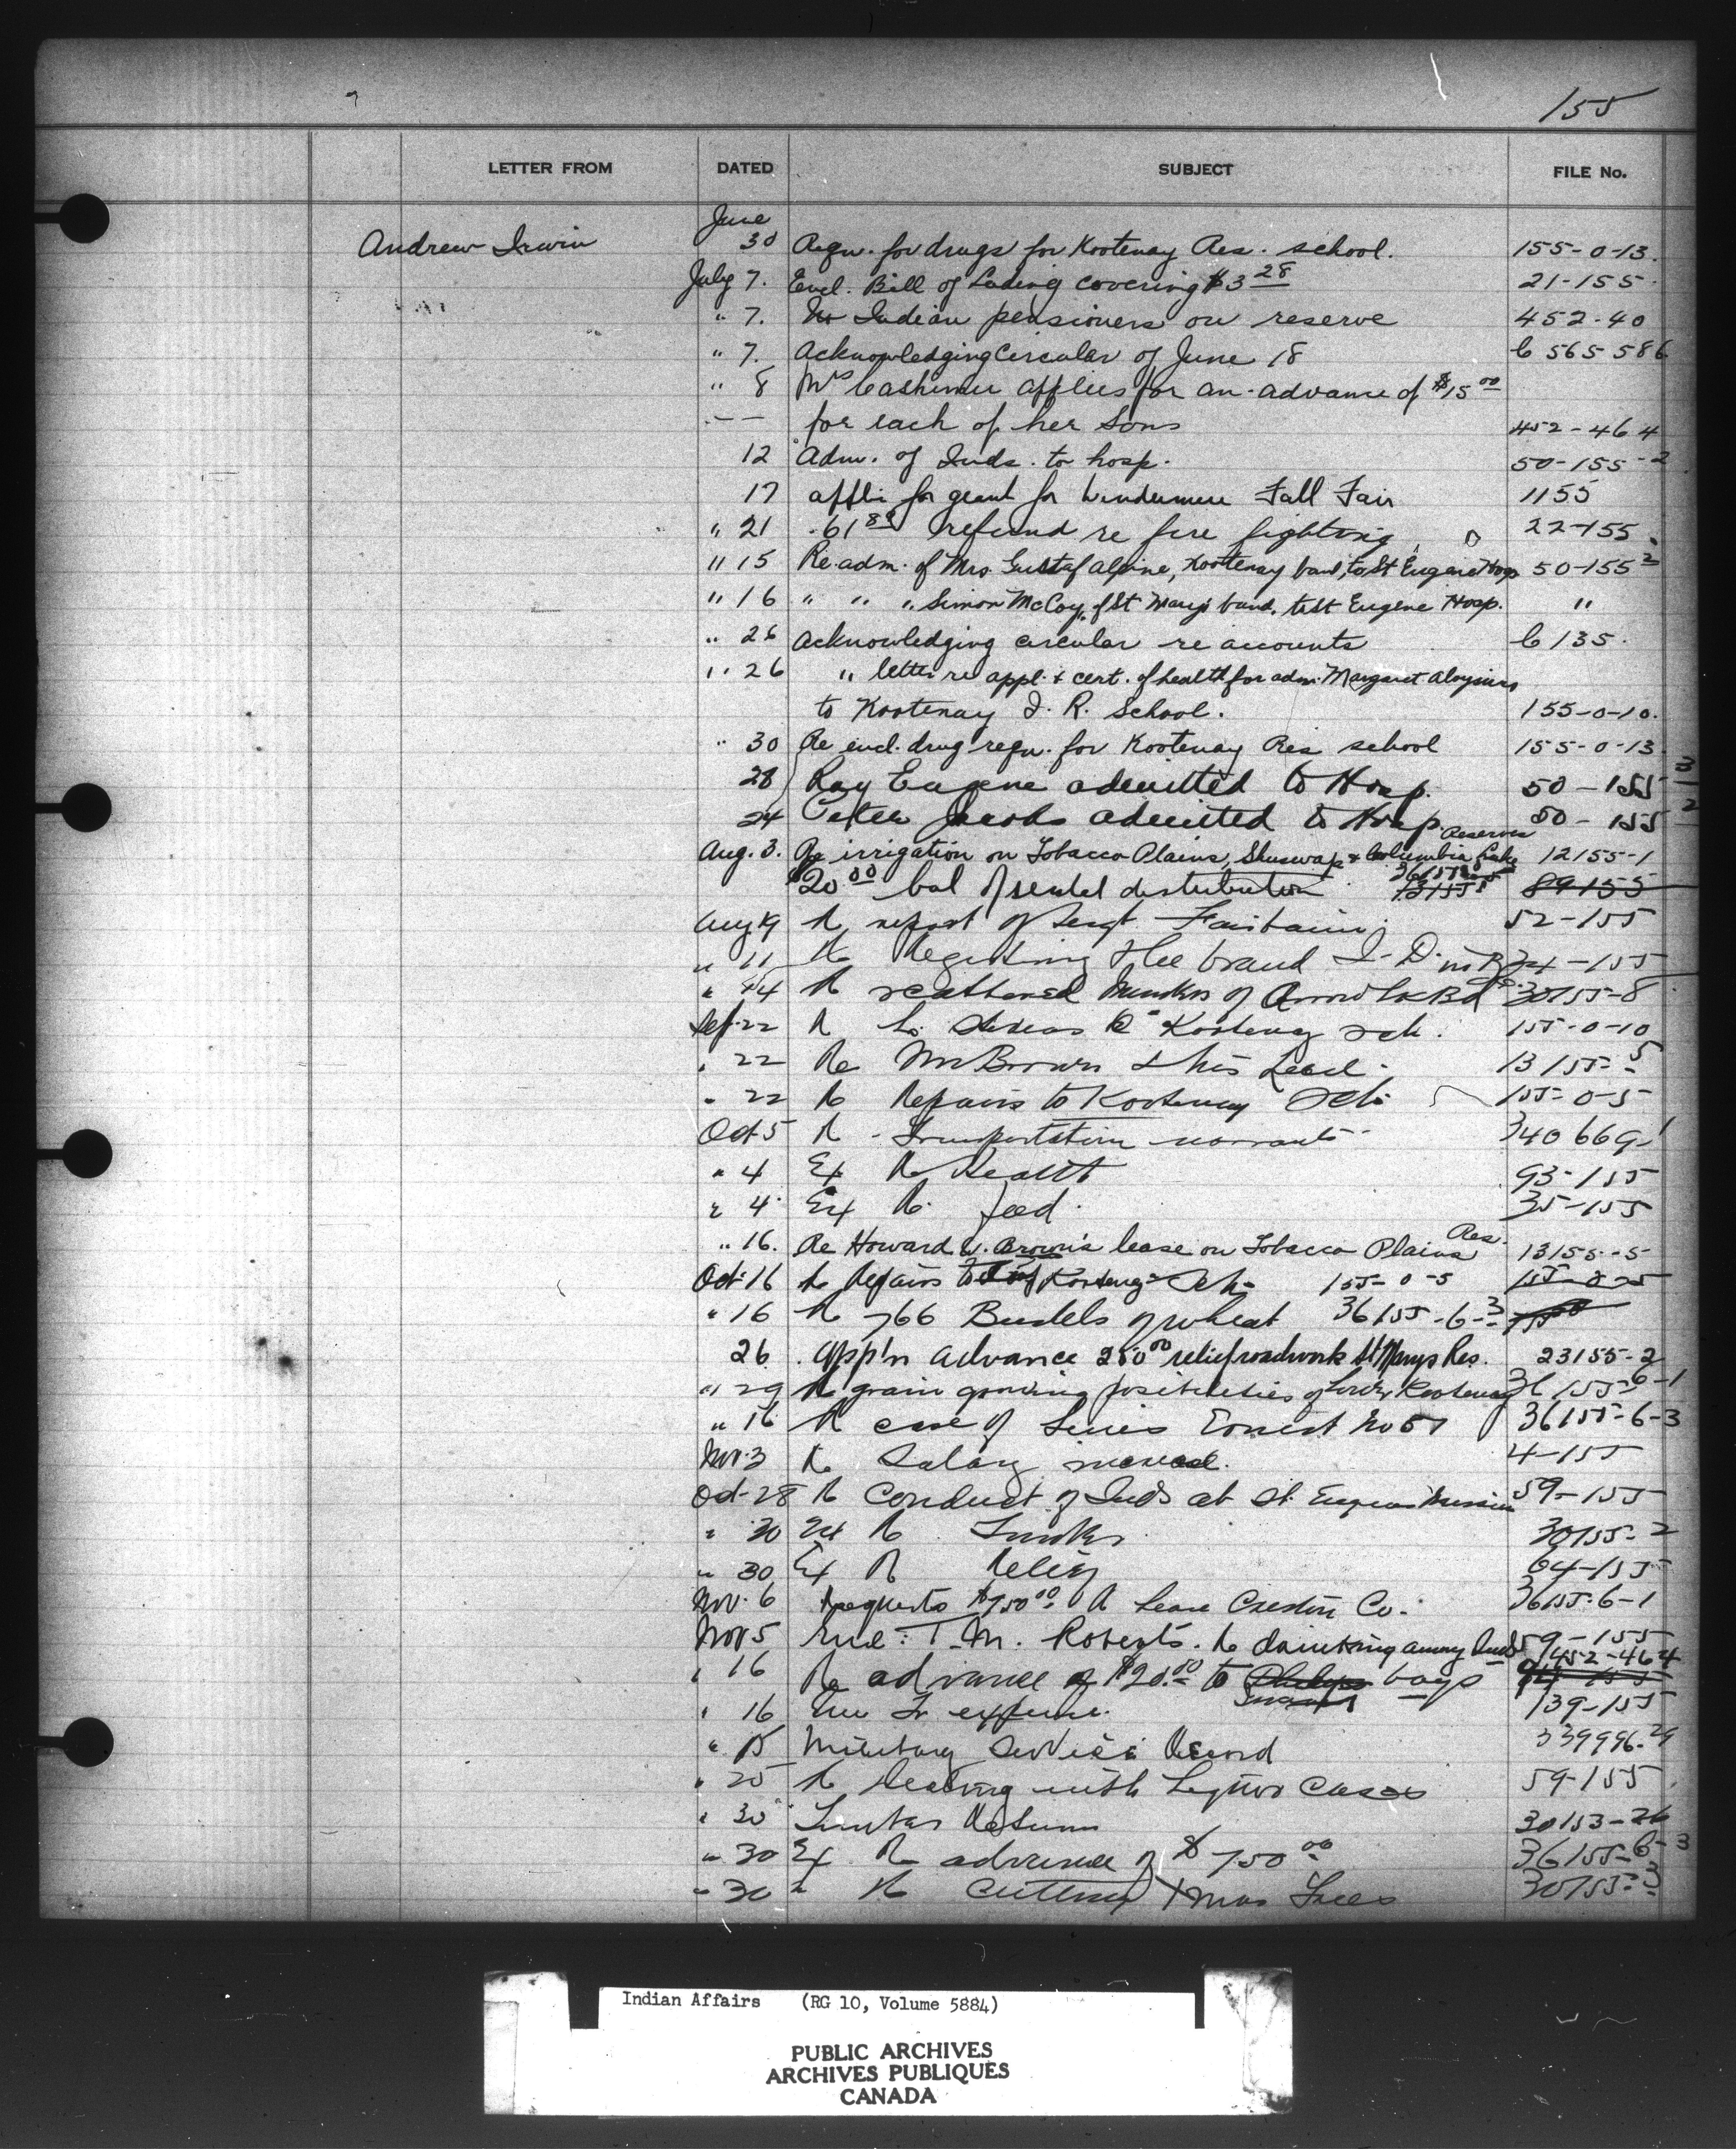 155
LETTER FROM DATED SUBJECT FILE No.
June
Andrew Irwin 30 Reqn. for drugs for Kootenay Res. school. 155-0-13.
July 7. Encl. Bill of Lading covering $3 28 21-155.
" 7. No Indian pensioners on reserve 452-40
" 7. Acknowledging Circular of June 18 C 565-586
" 8 Mrs Cashimer applies for an advance of $15 00
for each of her Sons 452-464
12 Adm. of Inds. to hosp. 50-155-2
17 appli for grant for Windermere Fall Fair 1155
" 21 .61 89 refund re fire fighting 22-155
" 15 Re adm. of Mrs. Gustaf Alpine, Kootenay band, to St Eugene Hosp 50-155 2
" 16 " " " Simon McCoy, of St Mary's band, to St Eugene Hosp. "
" 26 acknowledging circular re accounts C 135.
" 26 " letter re appl. & cert. of health for adm. Margaret Aloysius
to Kootenay I. R. School. 155-0-10.
" 30 Re encl. drug reqn. for Kootenay Res school 155-0-13
28 Ray Eugene admitted to Hosp. 50-155 3
24 Peter Jacobs admitted to Hosp. 50-155 2
Reserves
Aug. 3. Re irrigation on Tobacco Plains, Shuswap & Columbia Lake 12155-1
$20 00 bal of rental distribution 89155
Aug 19 Re report of Sergt. 52-155
" 11 Re Registering the brand I.D. 34-155
Re scattered members of Arrow Lk Bd 30155-8
Sept 22 Re Kootenay sch. 155-0-10
" 22 Re Mr Brown & his Lead 13155-5
" 22 Re Repairs to Kootenay Sch. 155-0-5
Oct 5 Re Transportation warrants 340669-1
" 4 Ex Re Health 93-155
" 4 Ex Re feed. 35-155
" 16. Re Howard W. Brown's lease on Tobacco Plains Res. 13155-5
Oct 16 Re Repairs to Kootenay Sch. 155-0-5
" 16 Re 766 Bushels of wheat 36155-6-3
26. App'n advance 250 00 relief roadwork St Marys Res. 23155-2
" 29 Re grain growing possibilities of Lower Kootenay 36155-6-1
" 16 Re case of Ernest No 51 36155-6-3
Nov. 3 Re Salary increase. 4-155
Oct-28 Re Conduct of Inds at St. Eugene Mission 59-155
" 30 Ex Re Timber 30155-2
" 30 Ex Re Relief 64-155
Nov. 6 Requests $750 00 Re Lease Creston Co. 36155-6-1
Nov 5 Encl: T. M. Roberts. Re drinking among Inds 59-155
" 16 Re advance of $20.00 to boys 452-464
" 16 Tr expense. 139-155
" 15 Military Service Record 339996-29
" 25 Re Dealing with Liquor Cases 59-155
" 30 Timber Return 30153-26
" 30 Ex Re advance of $750 00 36155-6-3
" 30 " Re Cutting Xmas Trees 30155-3
Indian Affairs (RG 10, Volume 5884)
PUBLIC ARCHIVES
ARCHIVES PUBLIQUES
CANADA